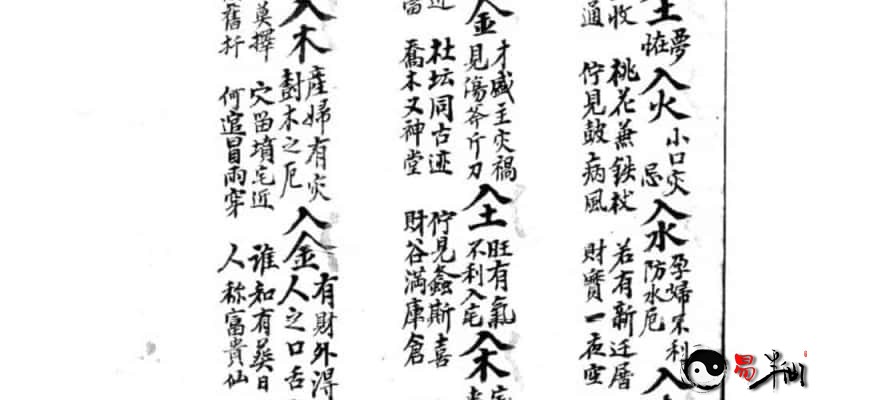 夢
土恠入火小口灾忌入水孕婦不利防水厄入
收 桃花兼鉄杖 若有新迁
通 佇見鼓病風 財寳一夜空
入金才盛主灾禍見傷斧斤刀入土旺有氣不利入宅入木
社坛同古迹 佇見螽斯喜
喬木又神堂 財谷満庫倉
入木産婦有灾封木之厄入金有財外淂人之口舌
莫擇 穴留墳宅近 誰知有葵日
舊折 何追冒雨穿 人称富貴仙
易半仙